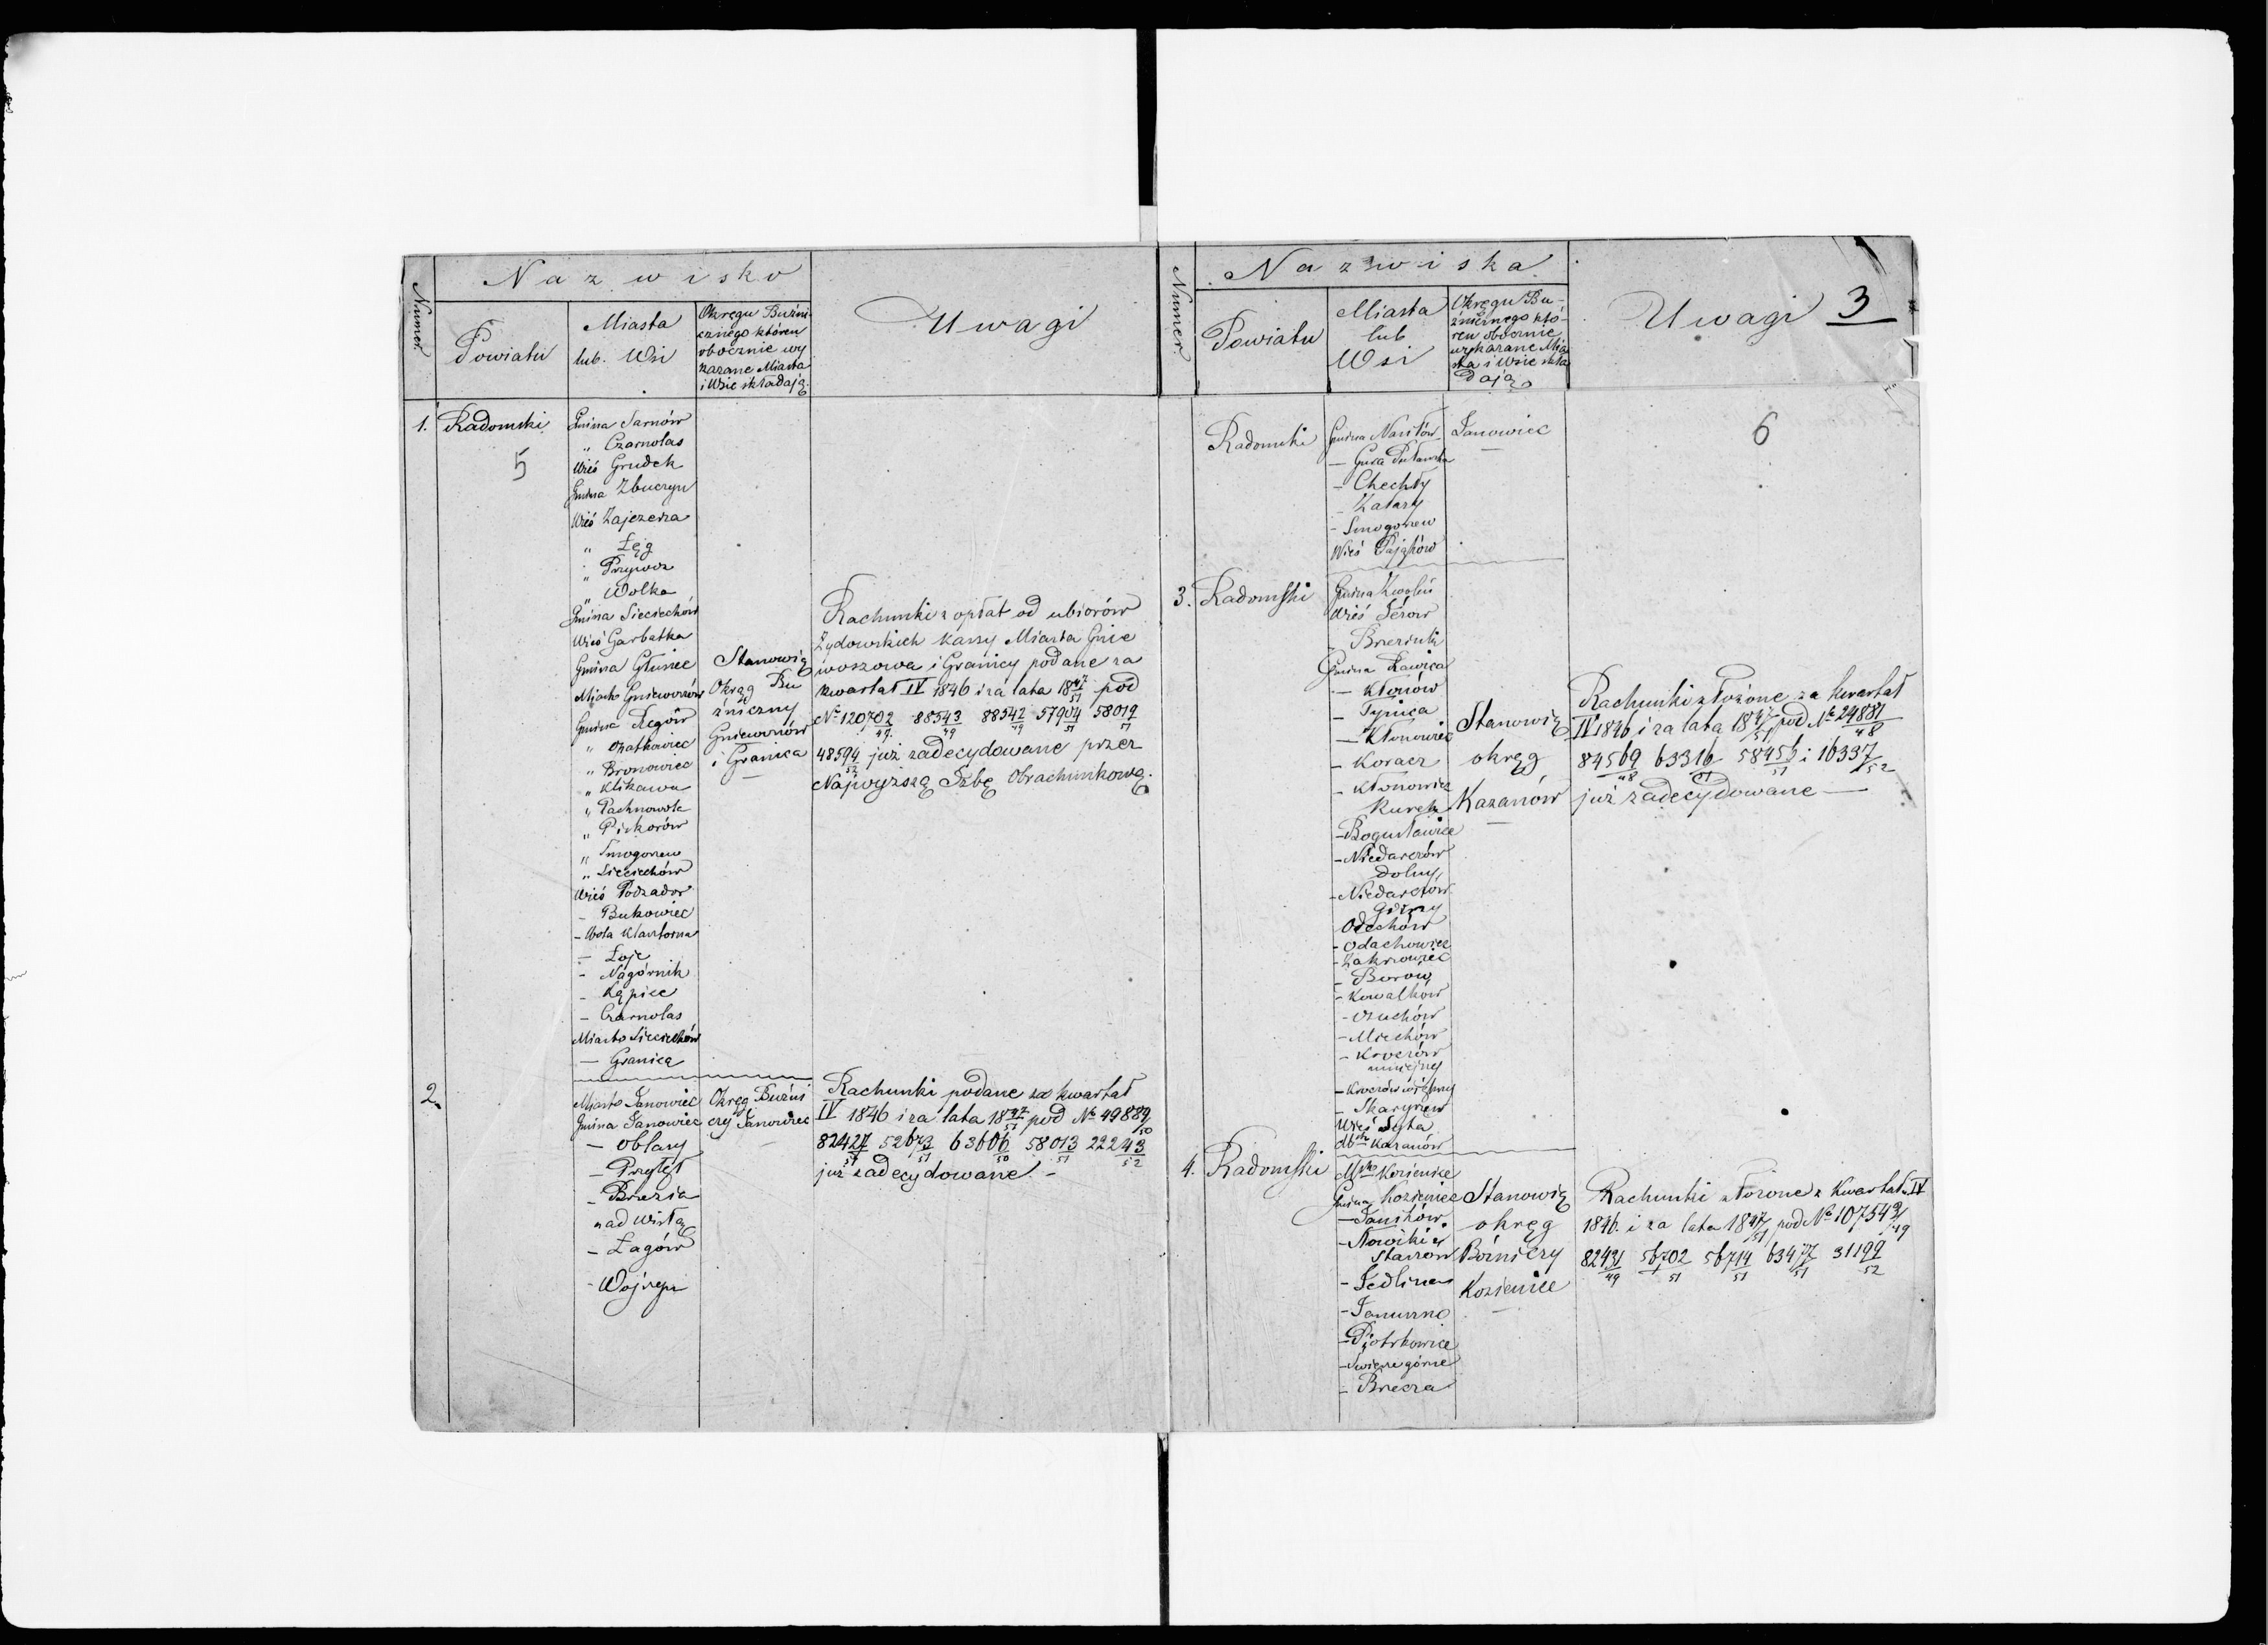 Numer
Nazwisko
Powiatu
Miasta
lub Wsi
Okręgu Bużni
cznego któren
obocznie wy
kazane Miasta
i Wsie składają.
Uwagi
1.
Radomski
5
Gmina Sarnów
„ Czarnolas
Wieś Grudek
Gmina Zbuczyn
Wieś Zajezerza
„ Łęg
„ Przywoz
„ Wolka
Gmina Sieciechów
Wieś Garbatka
Gmina Głusiec
Miasto Gniewoszów
Gmina Regów
„ Oxatkowiec
„ Bronowiec
„ Klikawa
„ Pachnowola
„ Piskorów
„ Smogorzew
„ Sieciechów
Wieś Podzador
– Bukowiec
– Wola Klasztorna
– Łoje
– Nagórnik
– Kępiec
– Czarnolas
Miasto Sieciechów
— Granica
Stanowią
Okrąg Bu
żniczny
Gniewoszów
i Granica
Rachunki z opłat od ubiorów
Żydowskich kassy Miasta Gnie
woszowa i Granicy podane za
kwartał IV 1846 i za lata 18 47/51 pod
No 120702/49 88543/49 88542/49 57904/51 58019/51
48594/52 już zadecydowane przez
Najwyższą Izbę Obrachunkową.
2.
Miasto Janowiec
Gmina Janowiec
— Oblasy
— Przyłęk
– Brzezia
nad Wisłą
– Łagów
– Wojszyn
Okręg Bużni
czy Janowiec
Rachunki podane za kwartał
IV 1846 i za lata 18 47/51 pod No 49889/50
82427/51 52673/51 63606/50 58013/51 22243/52
już zadecydowane. –
Numer
Nazwiska
Powiatu
Miasta
lub
Wsi
Okręgu Bu-
żnicznego któ-
ren obocznie
wykazane Mia
sta i Wsie skła
dają
Uwagi
3
Radomski
Gmina Nasiłów
— Gura Puławska
– Chechły
– Zatary
– Smogorzew
Wieś Pająków
Janowiec
6
3.
Radomski
Gmina Zwoleń
Wieś Sérow
– Brzezinki
Gmina Ławica
— Kłonów
– Tynica
— Kłonowiec
– Koracz
– Kłonowiec
Kurek
– Bogusławice
– Niedarczów
dolny
– Niedarczów
Górny
Odechów
– Odachowiec
– Zakrzowiec
– Borów
– Kowalków
– Osuchów
– Miechów
– Kroczów
mniejszy
– Kroczów większy
– Skaryszew
Wieś Seyta
Msto Kazanów
Stanowią
okręg
Kazanów
Rachunki złożone za kwartał
IV 1846 i za lata 18 47/51 pod No 24881/48
84569/48 63316/51 58456/51 i 16337/52
już zadecydowane —
4.
Radomski
Msto Kozienice
Gmina Kozienice
– Janików
– Nowiki i
Staszów
– Jedlina
– Januszno
– Piotrkowice
– Świerze górne
– Brzeza
Stanowią
okręg
Bóżniczy
Kozienice
Rachunki złożone z Kwartału IV
1846. i za lata 18 47/51 pod No 107543/49
82431/49 56702/51 56714/51 63477/51 31199/52